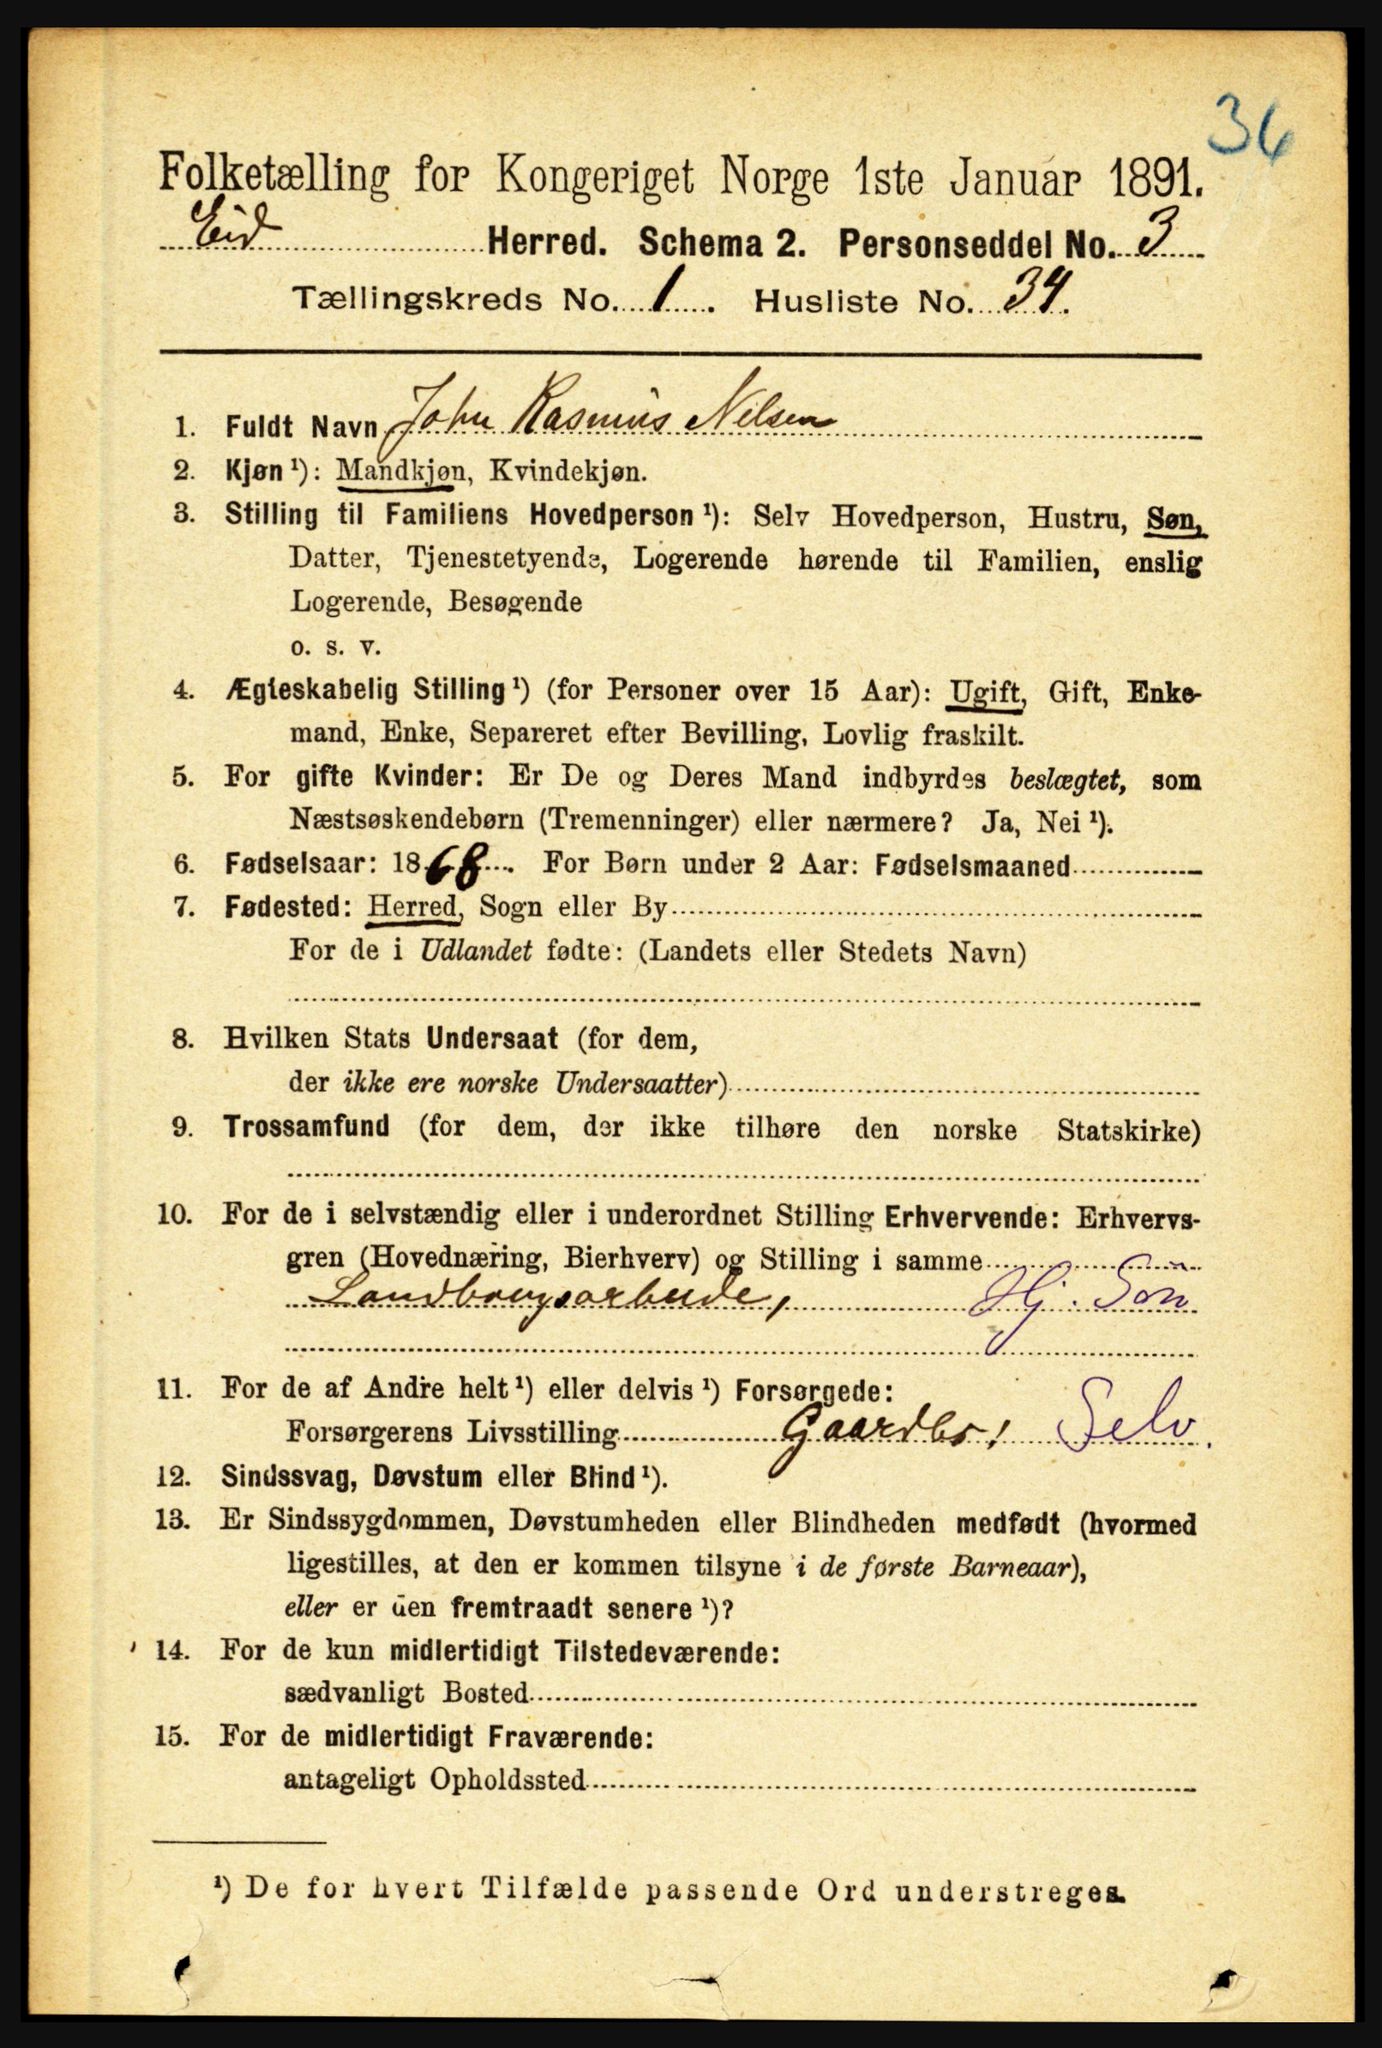 36
Folketælling for Kongeriget Norge 1ste Januar 1891.
Eid Herred. Schema 2. Personseddel No. 3
Tællingskreds No. 1. Husliste No. 34.
1. Fuldt Navn John Rasmus Nilsen
2. Kjøn ¹): Mandkjøn, Kvindekjøn.
3. Stilling til Familiens Hovedperson ¹): Selv Hovedperson, Hustru, Søn,
Datter, Tjenestetyende, Logerende hørende til Familien, enslig
Logerende, Besøgende
o. s. v.
4. Ægteskabelig Stilling ¹) (for Personer over 15 Aar): Ugift, Gift, Enke-
mand, Enke, Separeret efter Bevilling, Lovlig fraskilt.
5. For gifte Kvinder: Er De og Deres Mand indbyrdes beslægtet, som
Næstsøskendebørn (Tremenninger) eller nærmere? Ja, Nei ¹).
6. Fødselsaar: 1868. For Børn under 2 Aar: Fødselsmaaned
7. Fødested: Herred, Sogn eller By
For de i Udlandet fødte: (Landets eller Stedets Navn)
8. Hvilken Stats Undersaat (for dem,
der ikke ere norske Undersaatter)
9. Trossamfund (for dem, der ikke tilhøre den norske Statskirke)
10. For de i selvstændig eller i underordnet Stilling Erhvervende: Erhvervs-
gren (Hovednæring, Bierhverv) og Stilling i samme
Landbrugsarbeide, Hj. Søn
11. For de af Andre helt ¹) eller delvis ¹) Forsørgede:
Forsørgerens Livsstilling Gaardbr. Selv.
12. Sindssvag, Døvstum eller Blind ¹).
13. Er Sindssygdommen, Døvstumheden eller Blindheden medfødt (hvormed
ligestilles, at den er kommen tilsyne i de første Barneaar),
eller er den fremtraadt senere ¹)?
14. For de kun midlertidigt Tilstedeværende:
sædvanligt Bosted
15. For de midlertidigt Fraværende:
antageligt Opholdssted
¹) De for hvert Tilfælde passende Ord understreges.